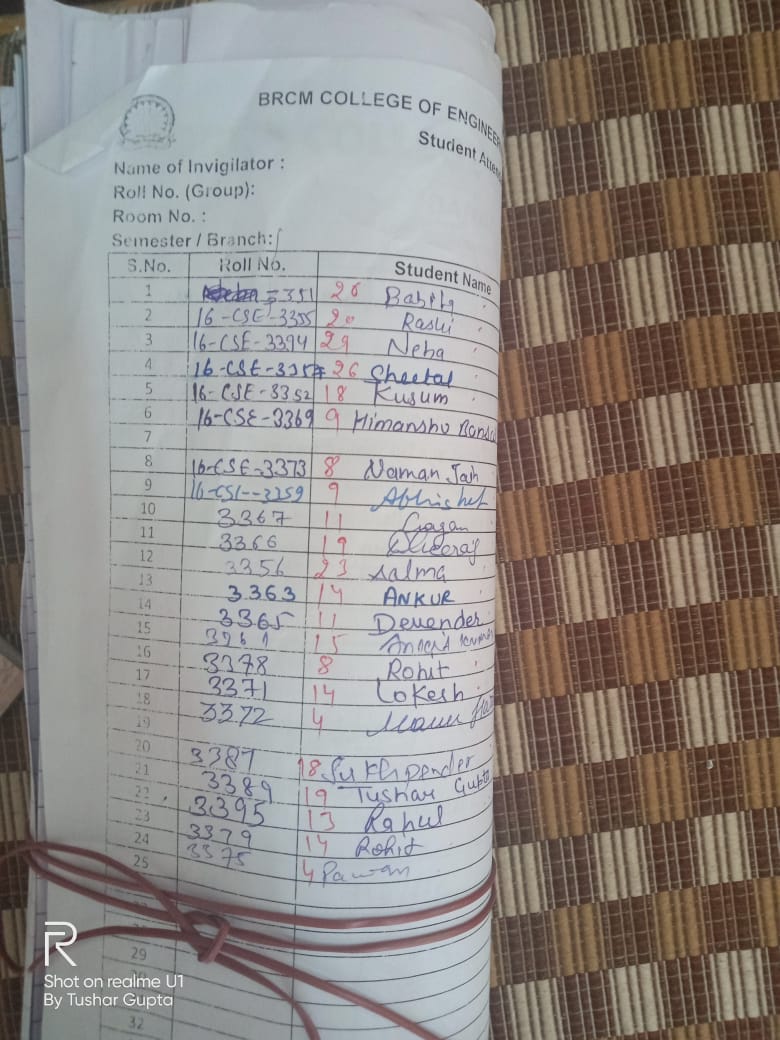 BRCM COLLEGE OF ENGINEER
Student Atten
Name of Invigilator :
Roll No. (Group):
Room No. :
Semester / Branch:
S.No. Roll No. Student Name
1 3351 26 Babita
2 16-CSE-3355 20 Rashi
3 16-CSE-3394 29 Neha
4 16-CSE-3357 26 Sheetal
5 16-CSE-3352 18 Kusum
6 16-CSE-3369 9 Himanshu Bansa
7
8 16-CSE-3373 8 Naman Jain
9 16-CSE-3359 9 Abhishek
10 3367 11 Gagan
11 3366 19 Dheeraj
12 3356 23 Salma
13 3363 14 ANKUR
14 3365 11 Devender
15 3361 15
16 3378 8 Rohit
17 3371 14 Lokesh
18 3372 4
19
20 3387 18 Sukhpender
21 3389 19 Tushar Gupta
22 3395 13 Rahul
23 3379 14 Rohit
24 3375 4 Pawan
25
29
32
R
Shot on realme U1
By Tushar Gupta